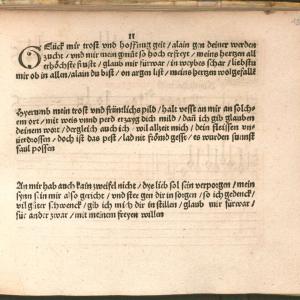 II
Glück mir trost vnd hoffnug geit / alain gen deiner werden
zucht / vnd mir mein gmüt so hoch erfreyt / meins hertzen all
erhöchste frucht / glaub mir fürwar / in weybes schar / liebstu
mir ob in allen / alain du bist / on argen list / meins hertzen wolgefallē
Hyerumb mein trost vnd früntlichs pild / halt vesst an mir an solch-
em ort / mit weis vnnd perd erzayg dich mild / dañ ich gib glauben
deinem wort / dergleich auch ich / wil alzeit mich / dein fleissen vn
uerdrossen / doch ist das pest / lad nit frömbd gesst / es wurden sunst
faul possen
An mir hab auch kain zweifel nicht / dye lieb sol sein verporgen / mein
synn sein mir also gericht / vnd stee gen dir in sorgen / so ich gedenck /
vil güter schwenck / gib ich mich dir in stillen / glaub mir fürwar /
für ander zwar / mit meinem freyen willen